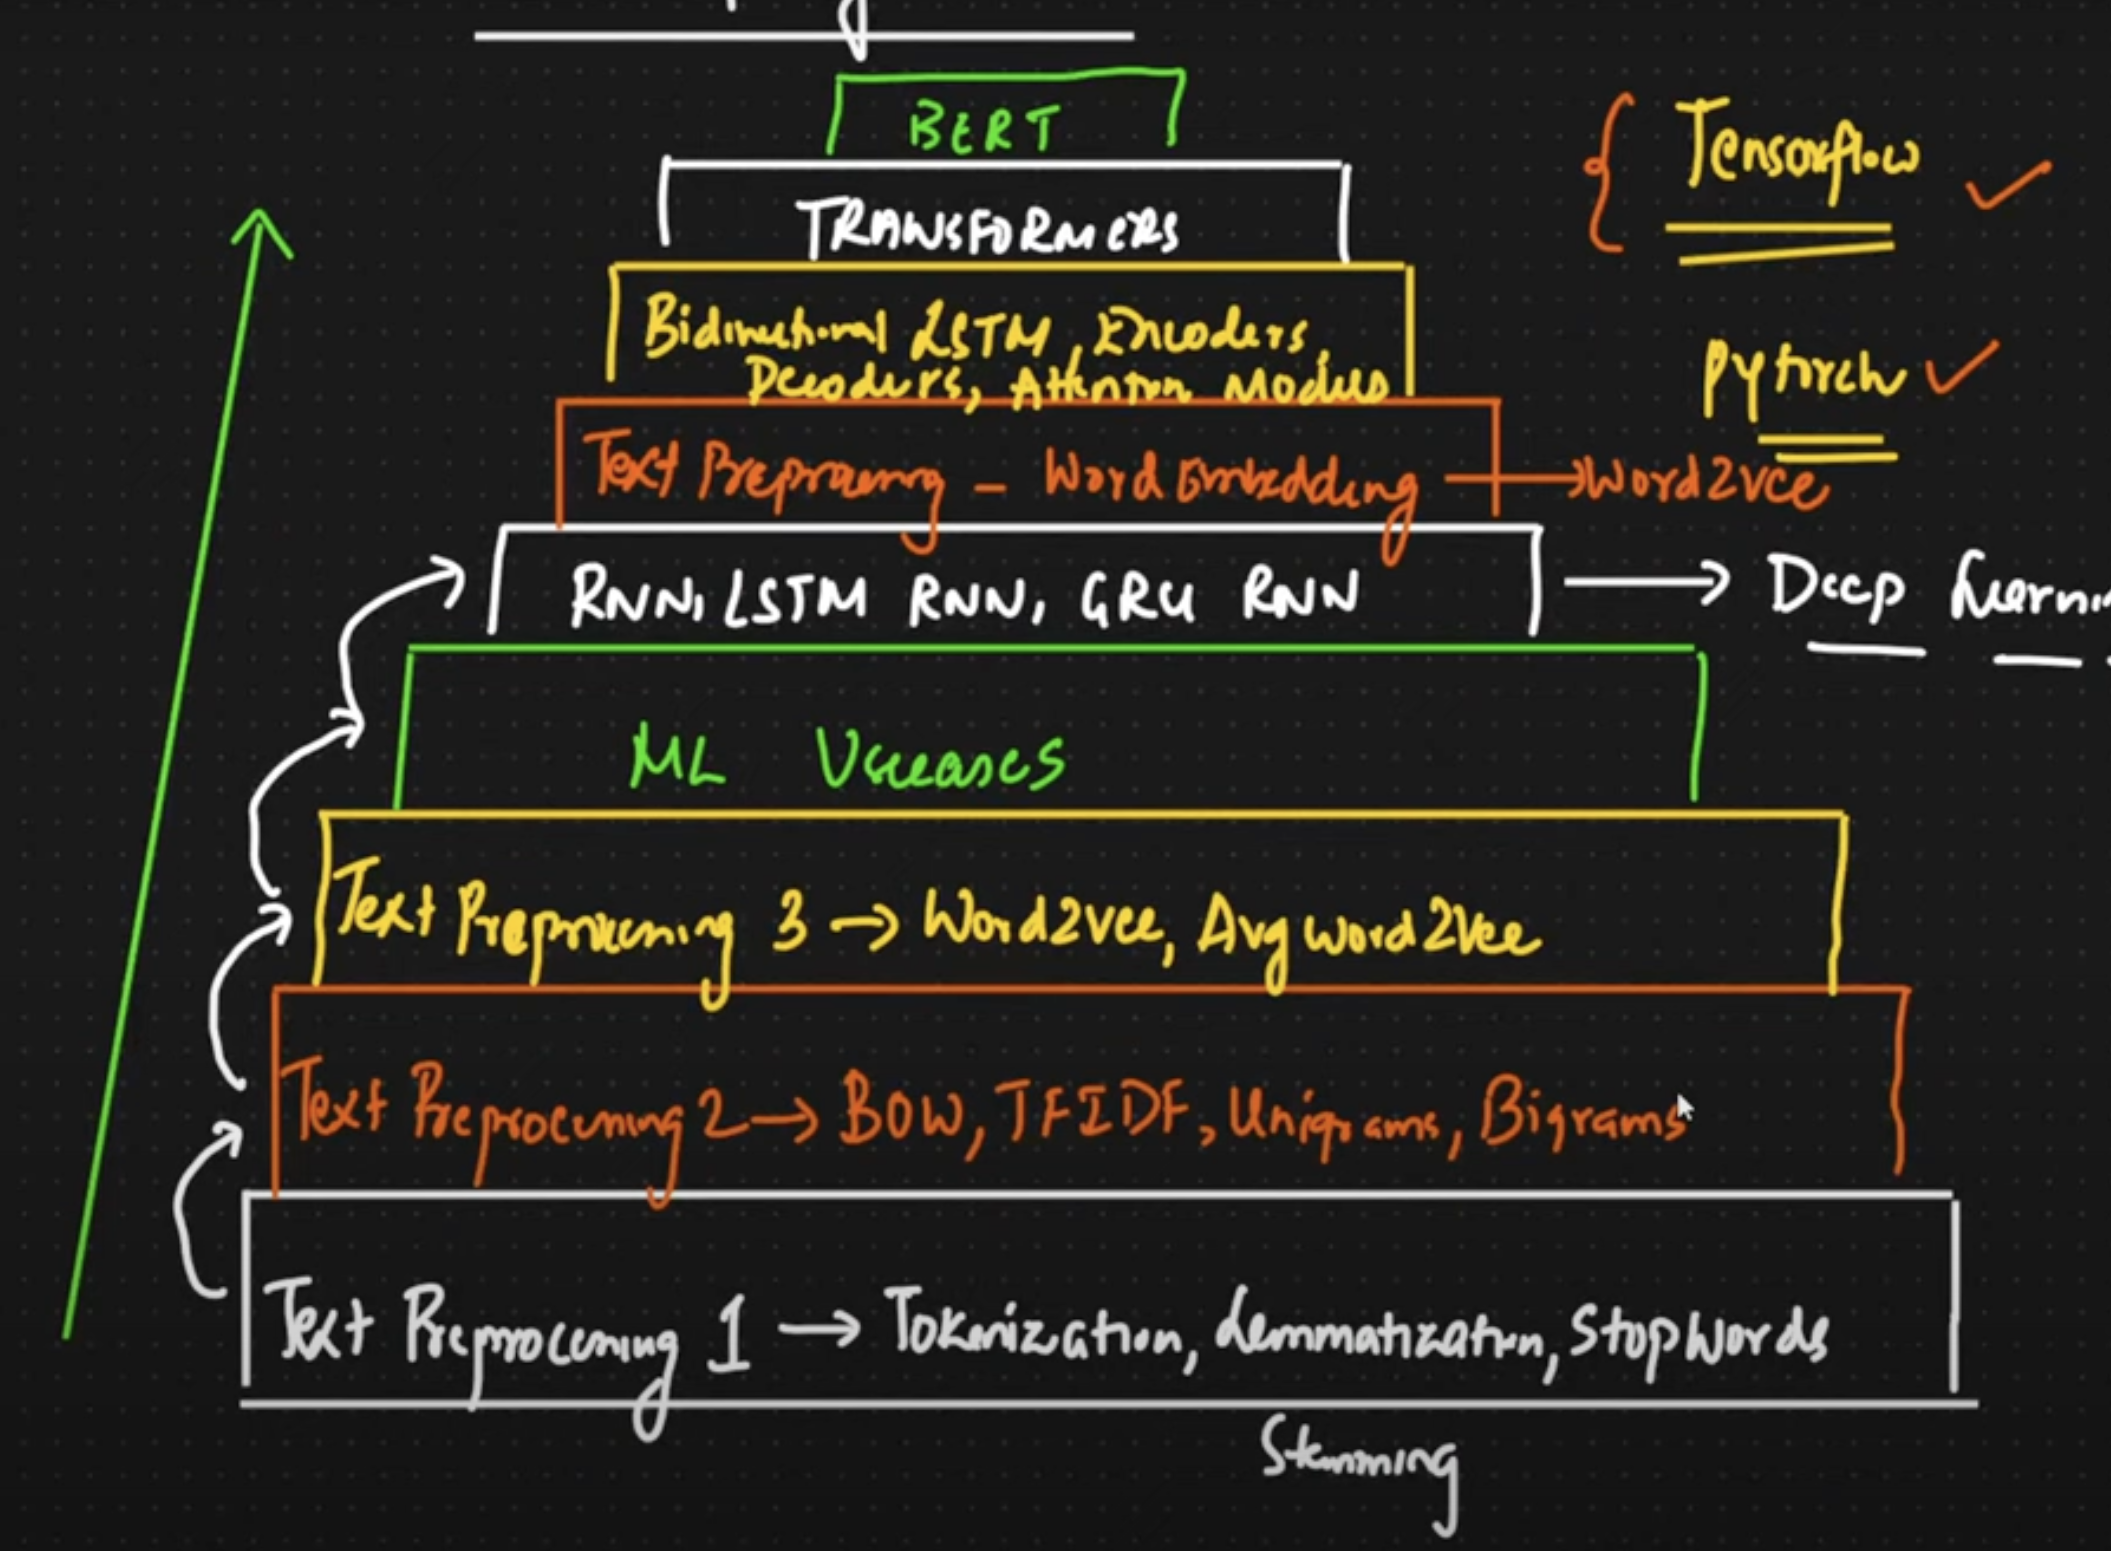 BERT
Tensorflow
TRANSFORMERS
Bidirectional LSTM, Encoders,
Decoders, Attention Models
Pytorch
Text Preprocessing - Word Embedding → Word2vec
RNN, LSTM RNN, GRU RNN → Deep
ML Usecases
Text Preprocessing 3 → Word2vec, Avgword2vec
Text Preprocessing 2 → BOW, TFIDF, Unigrams, Bigrams
Text Preprocessing 1 → Tokenization, Lemmatization, StopWords
Stemming